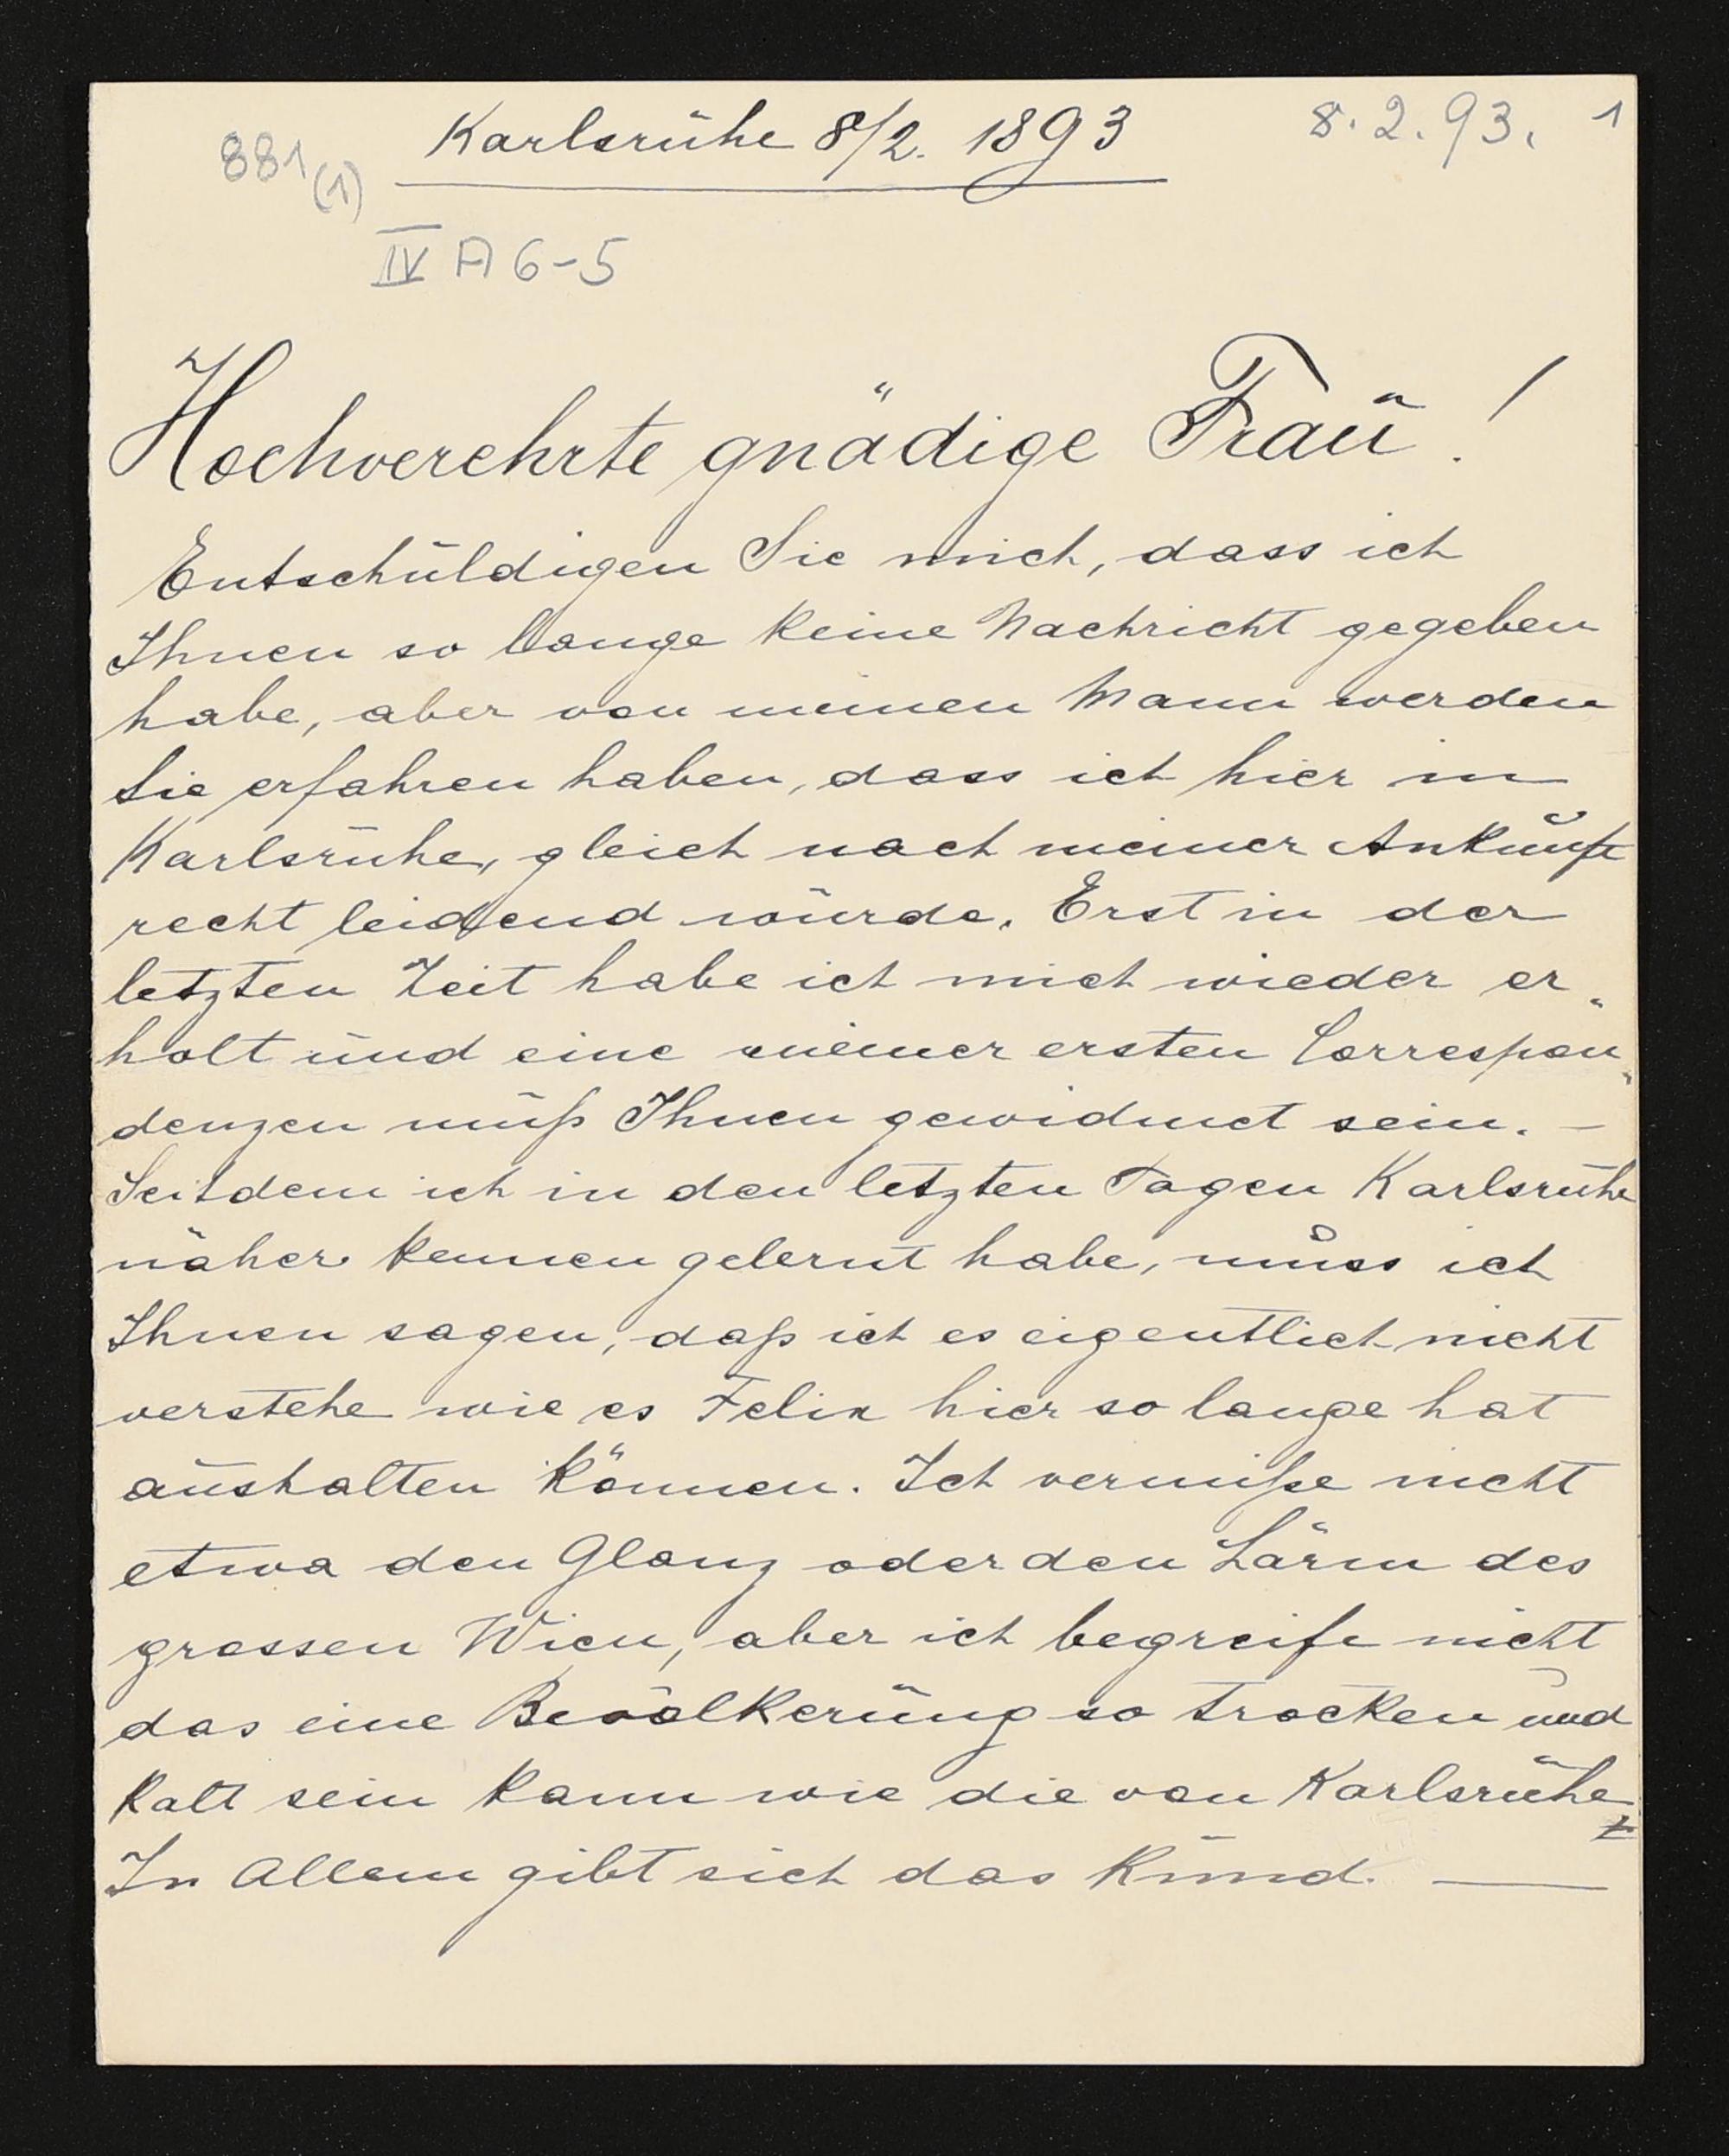 Karlsruhe 8/2. 1893
8.2.93. 1
881 (1)
IV A 6-5
Hochverehrte gnädige Frau!
Entschuldigen Sie mich, dass ich
Ihnen so lange keine Nachricht gegeben
habe, aber von meinen Mann werden
Sie erfahren haben, dass ich hier in
Karlsruhe, gleich nach meiner Ankunft
recht leidend wurde. Erst in der
letzten Zeit habe ich mich wieder er„
holt und eine meiner ersten Correspon„
denzen muß Ihnen gewidmet sein. –
Seitdem ich in den letzten Tagen Karlsruhe
näher kennen gelernt habe, muss ich
Ihnen sagen, daß ich es eigentlich nicht
verstehe wie es Felix hier so lange hat
aushalten können. Ich vermiße nicht
etwa den Glanz oder den Lärm des
grossen Wien, aber ich begreife nicht
das eine Bevölkerung so trocken und
kalt sein kann wie die von Karlsruhe
In Allem gibt sich das kund. —